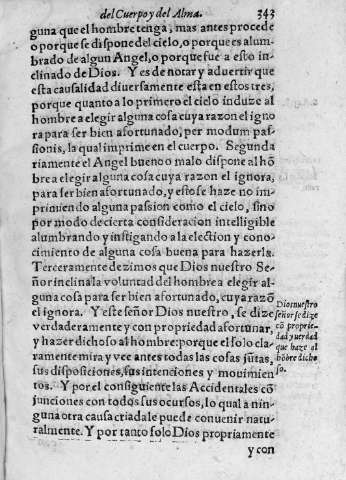 del Cuerpo y del Alma. 343
guna que el hombre tenga, mas antes procede
o porque se dispone del cielo, o porque es alum-
brado de algun Angel, o porque fue a esto in-
clinado de Dios. Y es de notar y aduertir que
esta causalidad diuersamente esta en estos tres,
porque quanto a lo primero el cielo induze al
hombre a elegir alguna cosa cuya razon el igno
ra para ser bien afortunado, per modum pas-
sionis, la qual imprime en el cuerpo. Segunda
riamente el Angel bueno o malo dispone al hõ
bre a elegir alguna cosa cuya razon el ignora,
para ser bien afortunado, y esto se haze no im-
primiendo alguna passion como el cielo, sino
por modo de cierta consideracion intelligible
alumbrando y instigando a la election y cono-
cimiento de alguna cosa buena para hazerla.
Terceramente dezimos que Dios nuestro Se-
ñor inclina la voluntad del hombre a elegir al-
guna cosa para ser bien afortunado, cuya razõ
el ignora. Y este señor Dios nuestro, se dize
verdaderamente y con propriedad afortunar,
y hazer dichoso al hombre: porque el solo cla-
ramente mira y vee antes todas las cosas jũtas,
sus disposiciones, sus intenciones y mouimien
tos. Y por el consiguiente las Accidentales cõ
junciones con todos sus ocursos, lo qual a nin-
guna otra causa criada le puede conuenir natu-
ralmente. Y por tanto solo Dios propriamente
y con
Dios nuestro
señor se dize
cõ proprie-
dad y verdad
que haze al
hõbre dicho
so.